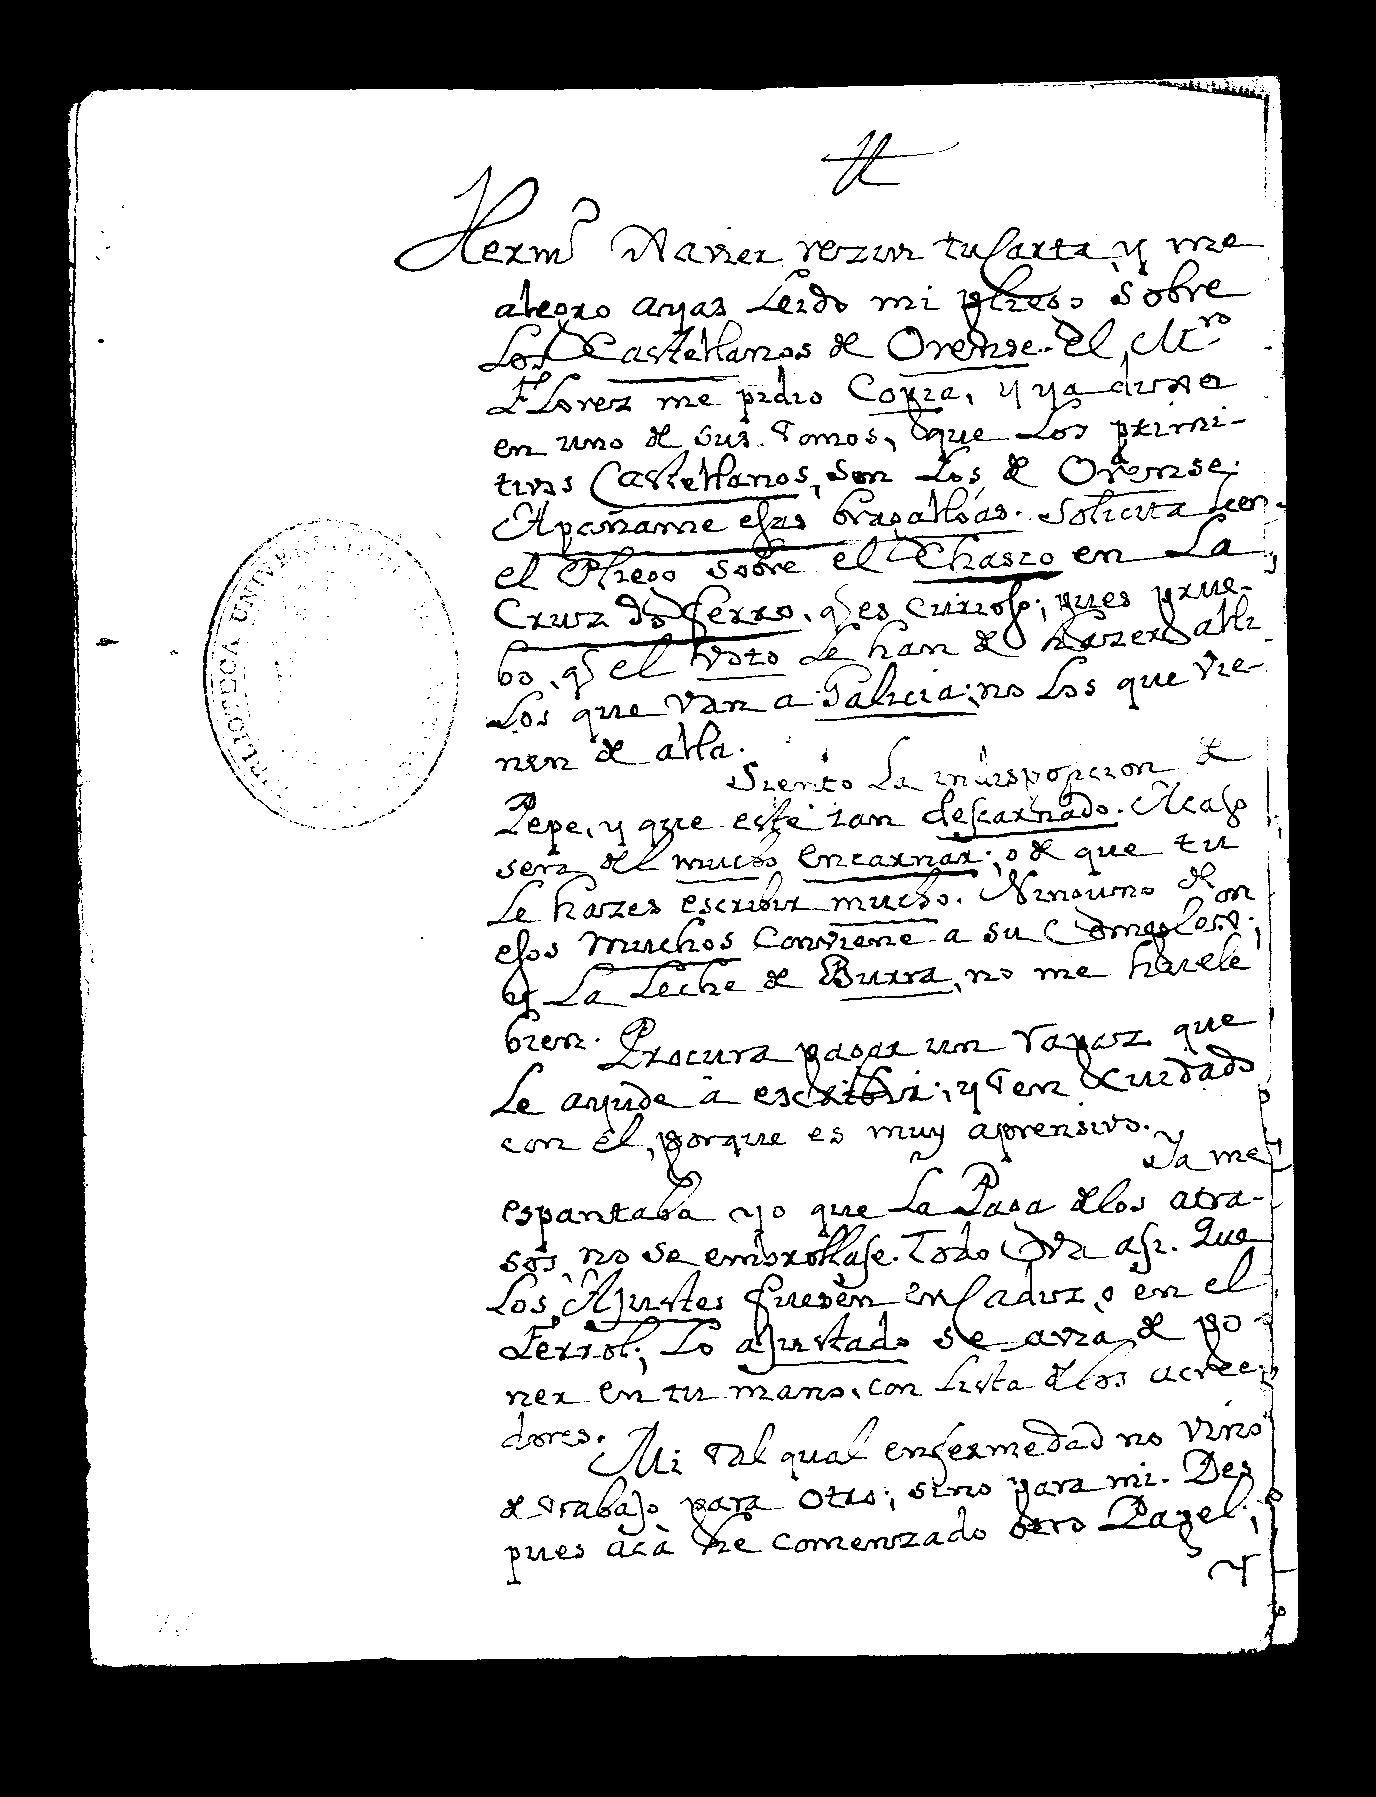 Herm.º Xavier reziui tu Carta y me
alegro ayas Leido mi pliego sobre
Los Castellanos de Orense. El M.ro
Florez me pidio Copia, y ya dixo
en uno de sus Tomos, que Los primi-
tivos Castellanos, son Los de Orense.
Apañame esas bragallas. Solicita leer
el Pliego sobre el Chasco en La
Cruz do ferro, q̃ es curioso; pues prue-
bo, q̃ el voto le han de hazer alli
Los que van a Galicia; no Los que vie-
nen de alla.
Siento La indisposicion de
Pepe, y que este tan descarnado. Acaso
sera del mucho encarnar; o de que tu
Le hazes escribir mucho. Ninguno de
esos muchos conviene a su Complexion;
y La Leche de Burra, no me huele
bien. Procura pagar un rapaz que
Le ayude à escribir; y ten cuidado
con él, porque es muy aprensivo.
Ya me
espantaba yo que La Paga de los atra-
sos, no se embrollase. Todo va asi. Que
Los Ajustes fuesen en Cadiz, o en el
Ferrol; Lo ajustado se avia de po-
ner en tu mano, con Lista de los acree-
dores.
Mi tal qual enfermedad no vino
de trabajo para otro; sino para mi. Des
pues acà he comenzado otro Papel;
y
BIBLIOTECA UNIVERSITARIA